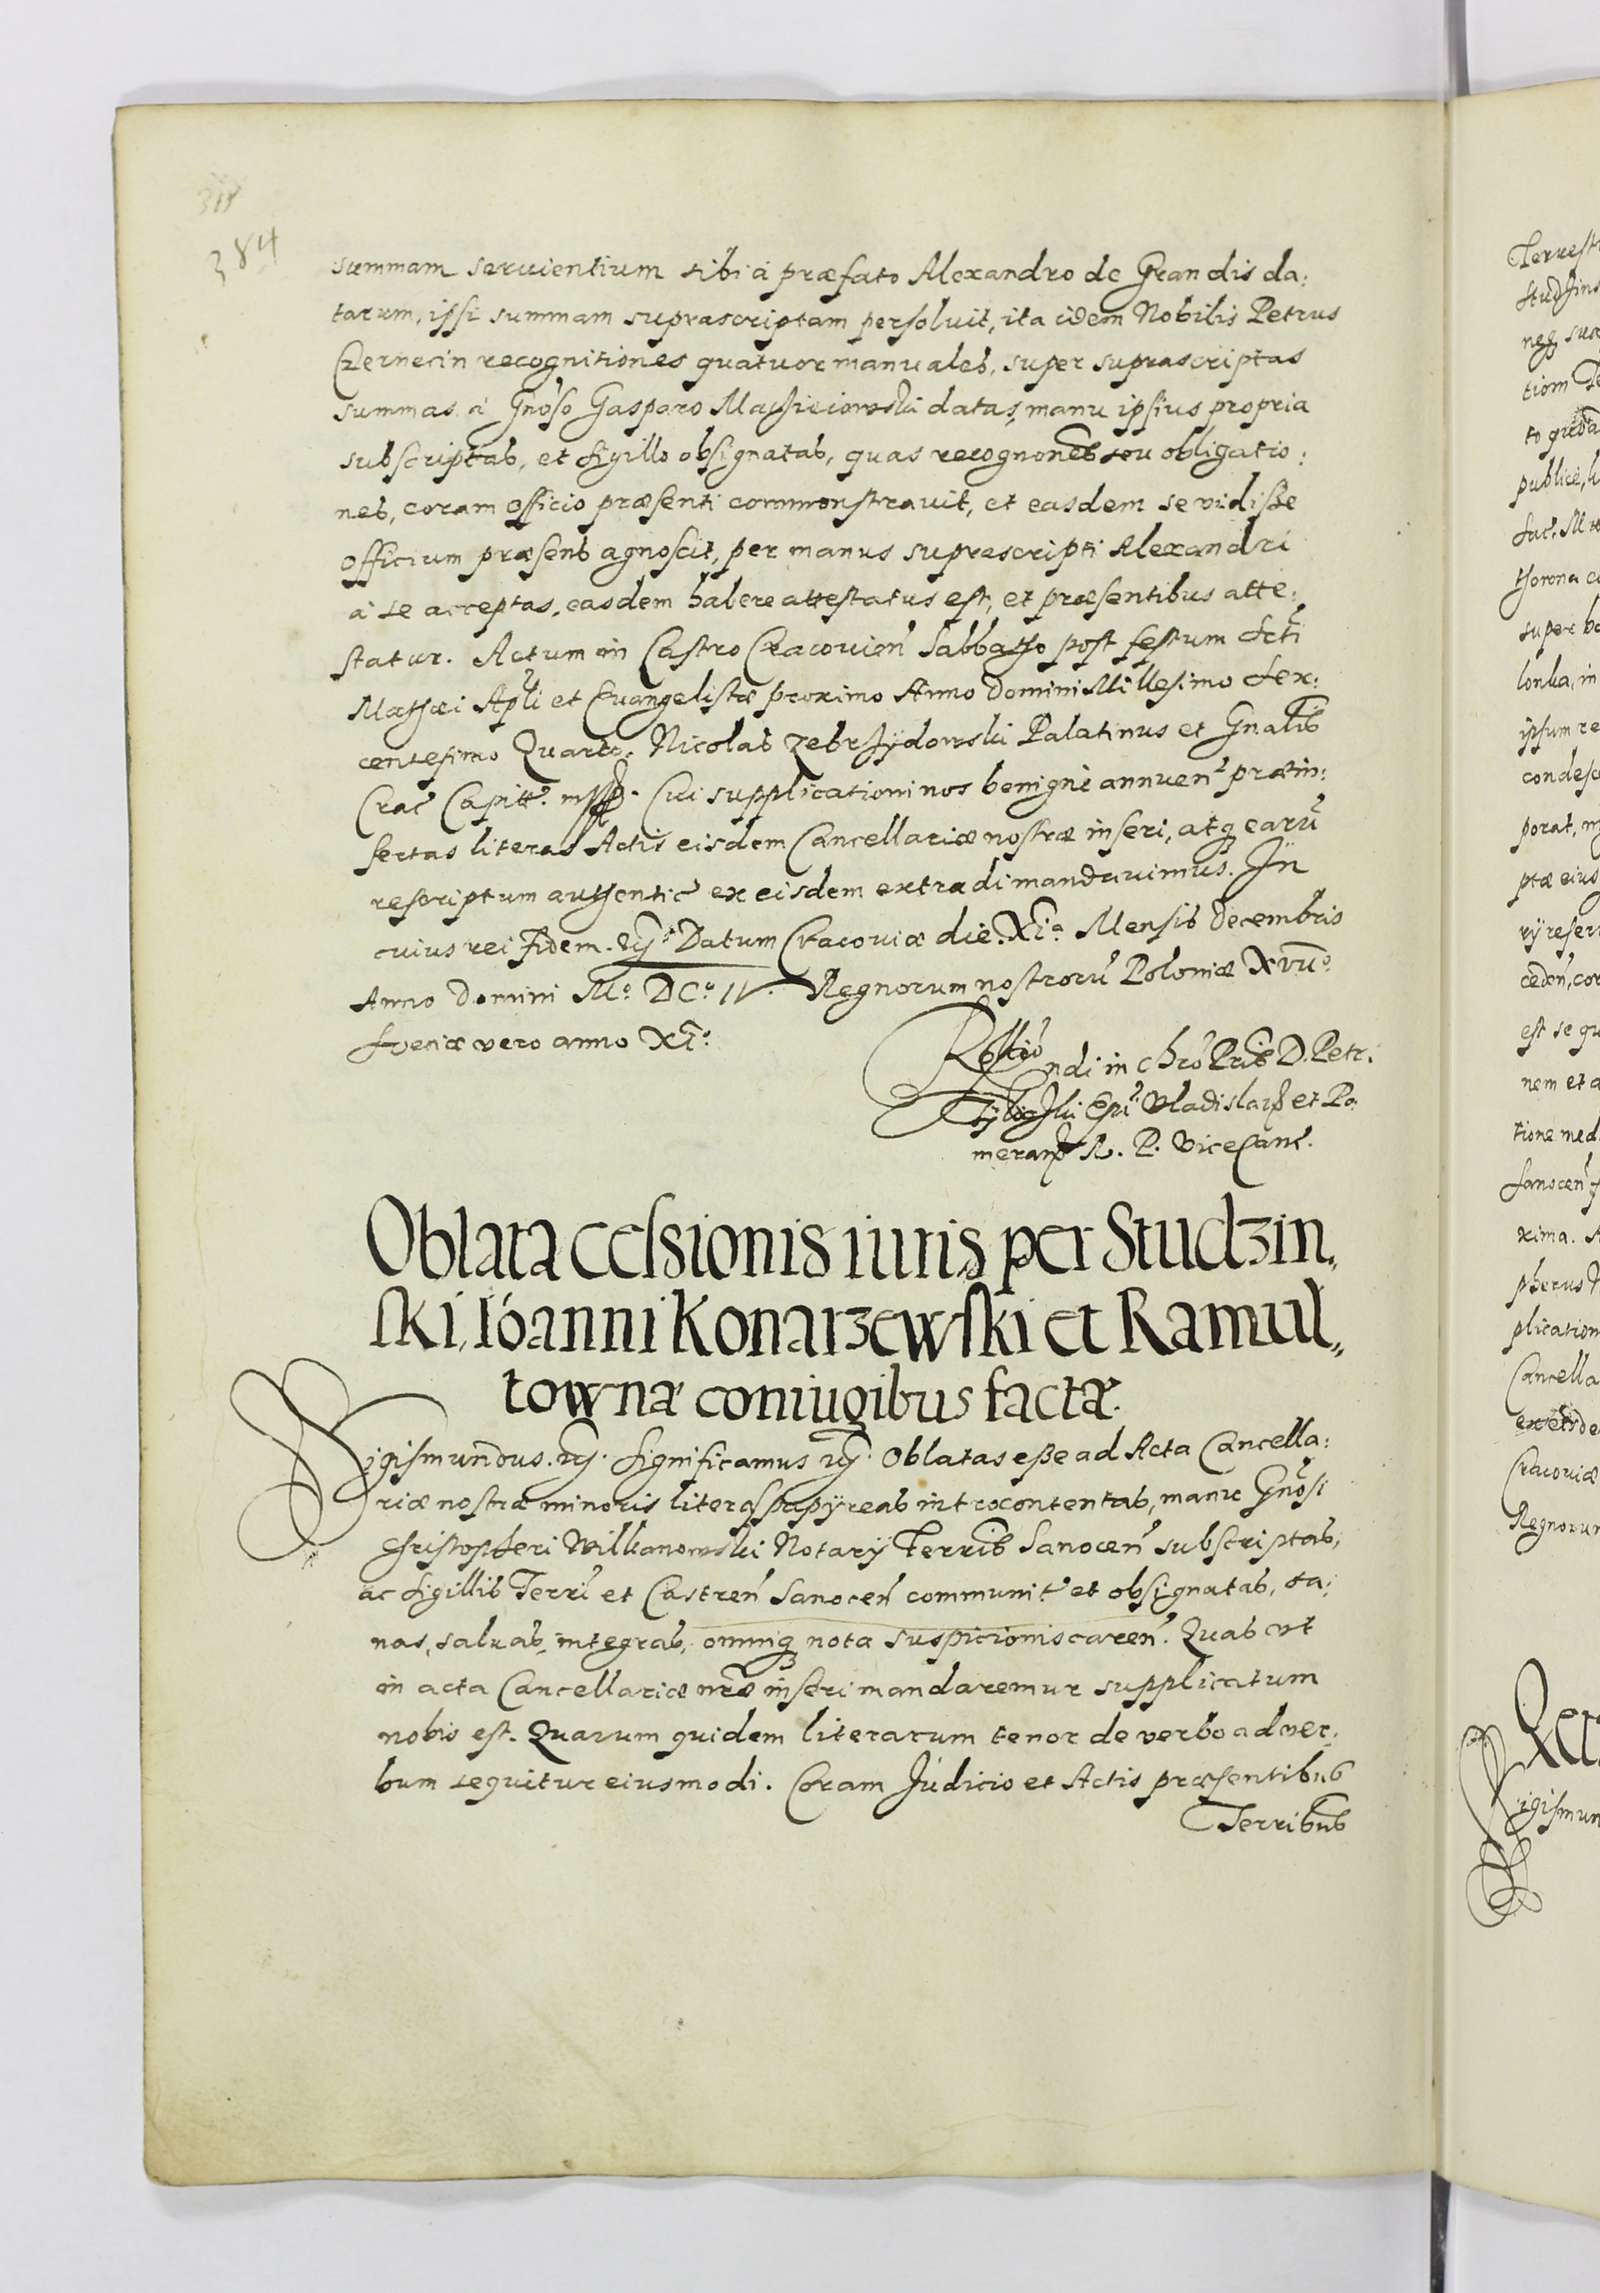 384
summam seruientium sibi à præfato Alexandro de Grandis da:
tarum, ipsi summam suprascriptam persoluit, ita idem Nobilis Petrus
Czernecin recognitiones quatuor manuales, super suprascriptas
summas à Gnoso Gasparo Maciieiowski datas, manu ipsius propria
subscriptas, et sigillo obsignatas, quas recognones seu obligatio:
nes, coram officio præsenti commonstrauit, et easdem se vidisse
officium præsens agnoscit, per manus suprascripti Alexandri
à se acceptas, easdem habere attestatus est, et præsentibus atte:
statur. Actum in Castro Cracouien Sabbatho post festum Scti
Mathæi Apli et Euangelistæ proximo Anno Domini Millesimo Sex:
centesimo Quarto. Nicolas Zebrzydowski Palatinus et Gnalis
Crac Capitt. mpp. Cui supplicationi nos benignè annuen præin:
sertas literas Actis eisdem Cancellariæ nostræ inseri, atq earu
rescriptum authentic ex eisdem extradi mandauimus. In
cuius rei fidem. Datum Cracouiæ die XIa Mensis Decembris
Anno Domini Mo. DCo. IV. Regnorum nostroru Poloniæ XVIIo.
Sueciæ vero anno XIo.
ndi in Chro Pris D. Petr.
Tylicki Epi Vladislaui et Po:
meran R. P. ViceCanc.
Oblata cessionis iuris per Studzin,,
ski, Ioanni Konarzewski et Ramul,,
townæ coniugibus factæ.
Sigismundus. Significamus Oblatas esse ad Acta Cancella:
riæ nostræ minoris literas papyreas introcontentas, manu Gnosi
Christopheri Wilkanowski Notary Terris Sanocen subscriptas,
ac sigillis Terri et Castren Sanocen communit et obsignatas, sa:
nas, saluas, integras, omniq nota suspicionis caren. Quas vt
in acta Cancellariæ nræ inseri mandaremur supplicatum
nobis est. Quarum quidem literarum tenor de verbo ad ver:
bum sequitur eiusmodi. Coram Judicio et Actis præsentibus
Terribus